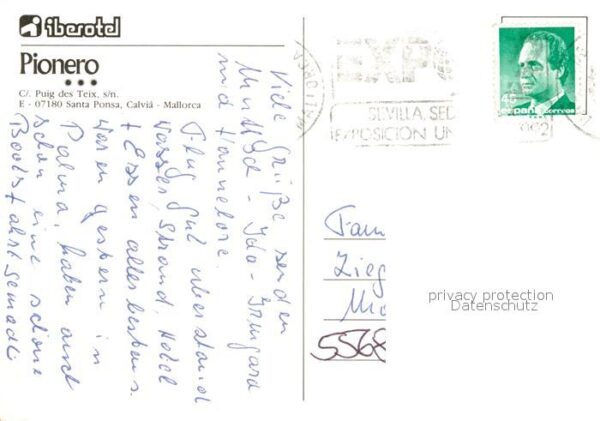 iberotel
Pionero
C/. Puig des Teix, s/n.
E - 07180 Santa Ponsa, Calviá - Mallorca
Viele Grüße senden
Ida - Irmgard
und Hannelore.
Flug gut überstand
Wasser, Strand, Hotel
+ Essen alles bestens.
Waren gestern in
Palma, haben auch
schon eine schöne
Bootsfahrt gemacht
MALLORCA
EXPO
SEVILLA, SED
EXPOSICION UN
992
45
ESPAÑA
correos
Fam
Zieg
5568
privacy protection
Datenschutz